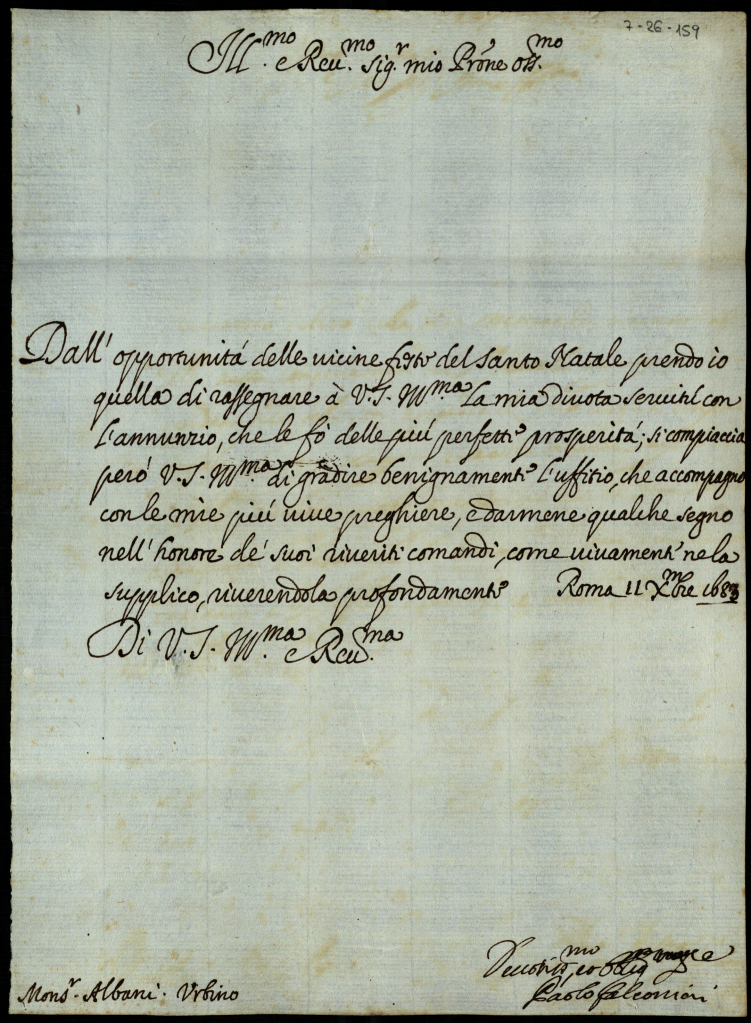 7-26-159
Ill.mo e Reu.mo sig.r mio Prone oss.mo
Dall' opportunitá delle uicine feste del santo Natale prendo io
quella di rassegnare à V.S. Ill.ma la mia diuota seruitú con
l'annunzio, che le fò delle piú perfette prosperitá; si compiaccia
peró V.S. Ill.ma di gradire benignamente l'uffitio, che accompagno
con le mie piú uiue preghiere, e darmene qualche segno
nell' honore de' suoi riueriti comandi, come uiuamente ne la
supplico, riuerendola profondamente Roma 11 Xmbre 1683
Di V.S. Ill.ma e Reu.ma
Deuotiss.mo et oblig
Paolo falconieri
Mons.r Albani. Vrbino